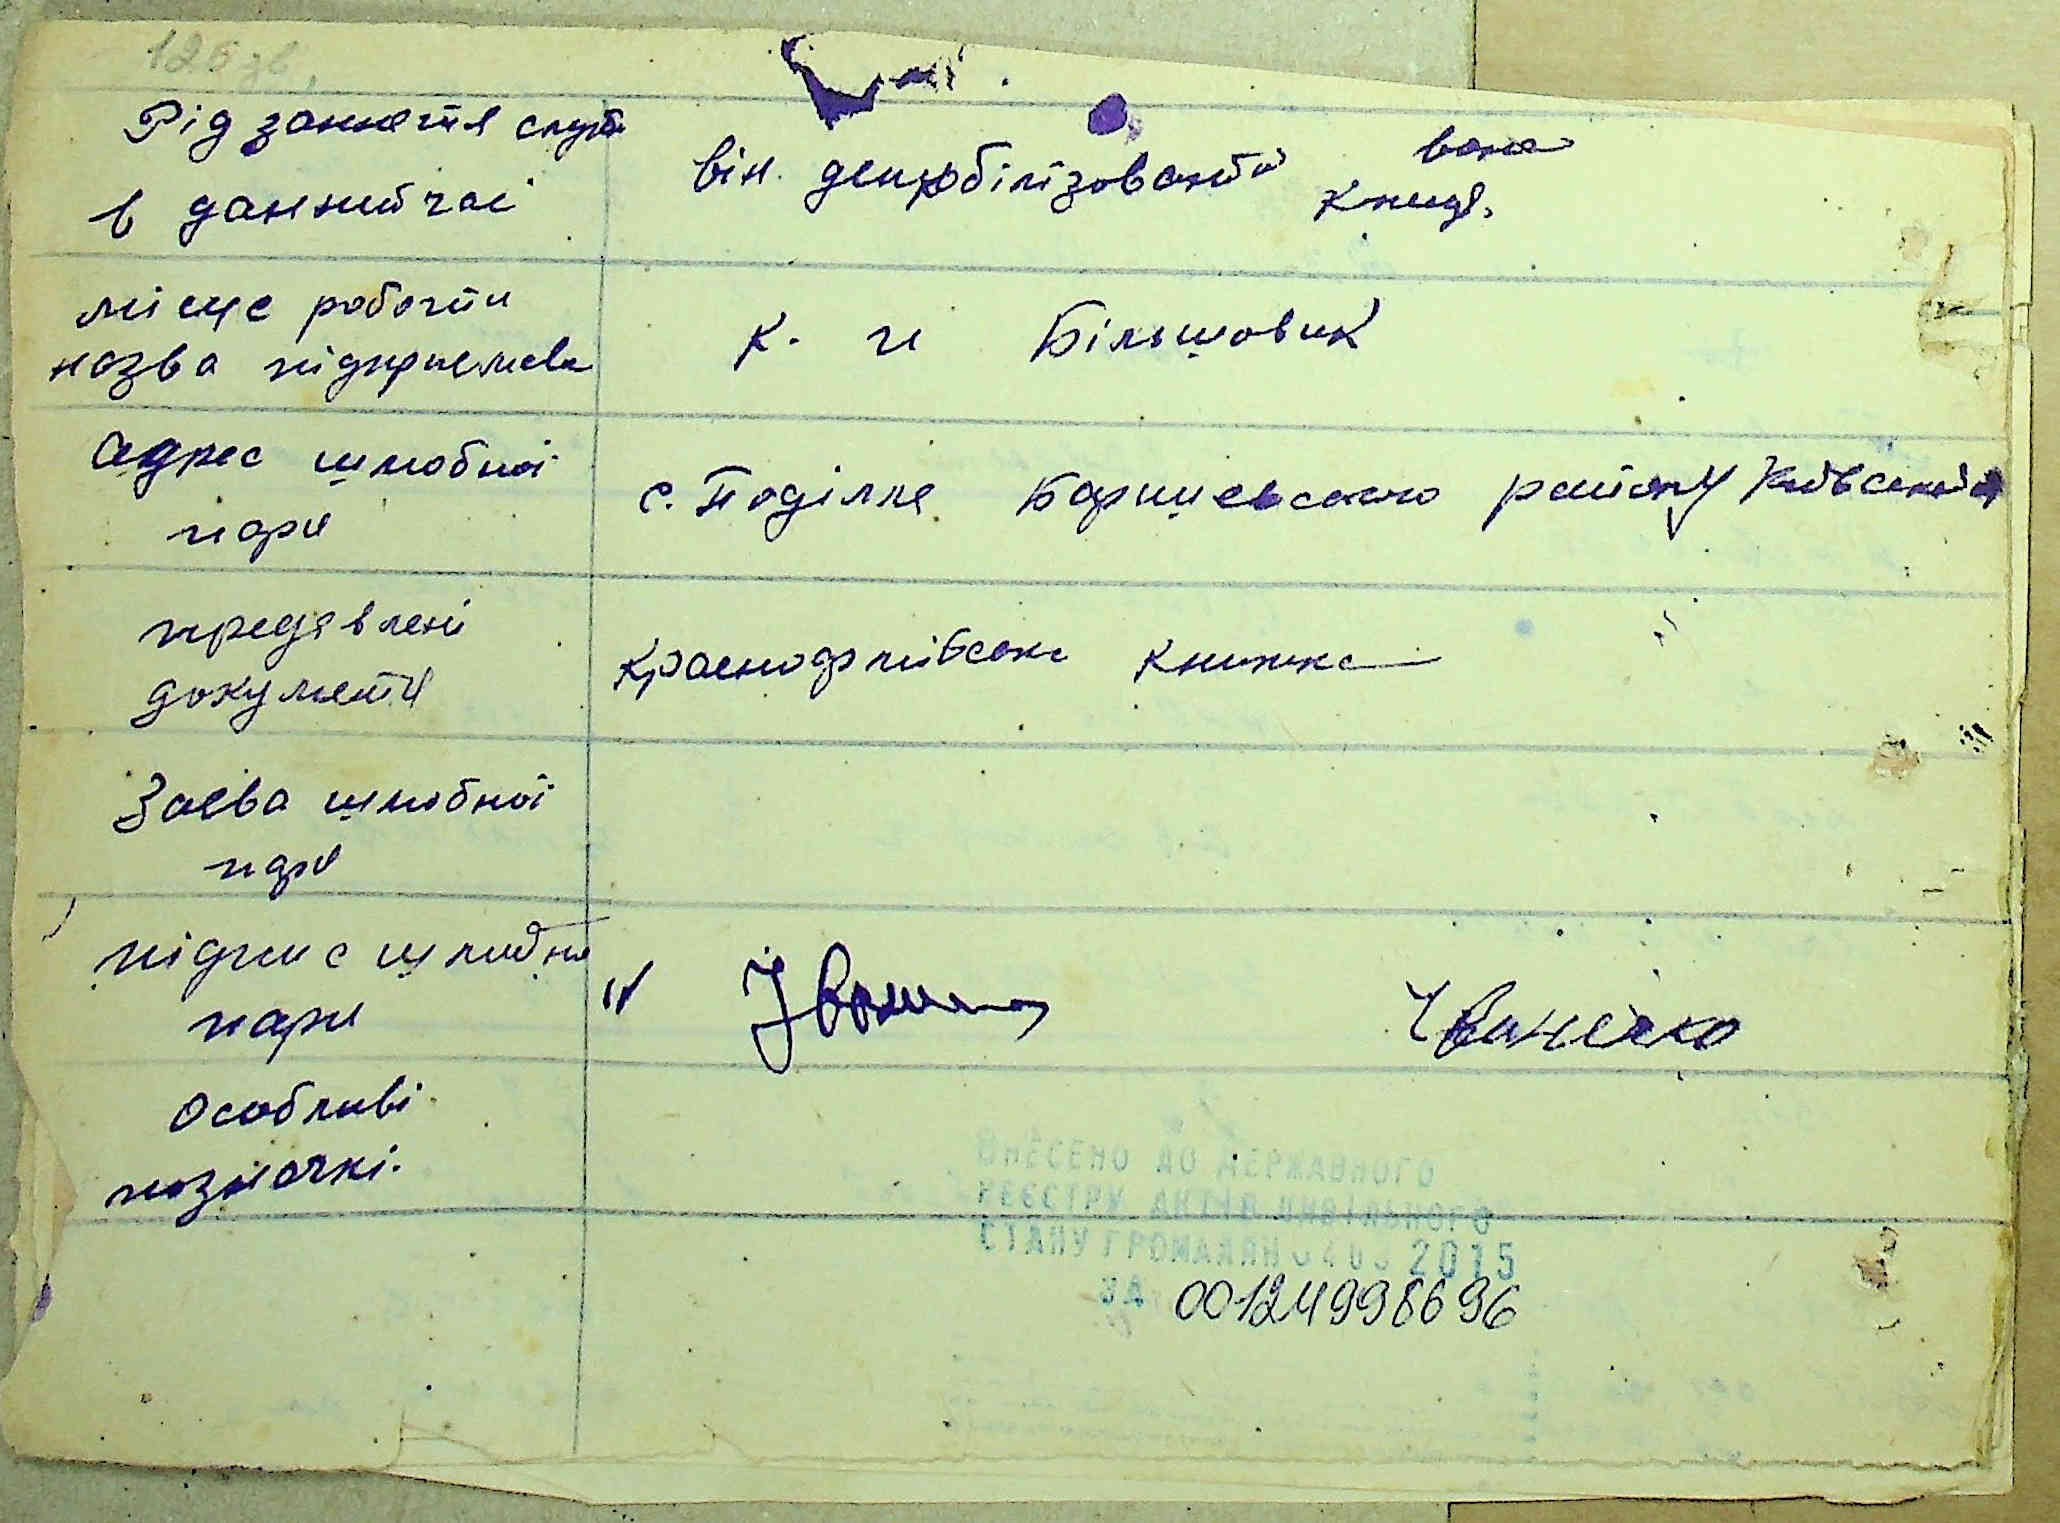 126 зв
Рід заняття служб
в данний час
він. демобілізований вона
к-ниця.
місце роботи
назва підприемсва
к. и Більшовик
Адрес шлюбної
пари
с. Поділля Баришевського району Київської
предявлені
документи
Краснофлівська книжка
Заєва шлюбної
пари
підпис шлюбно
пари
Іваненко
Особливі
позначкі.
ВНЕСЕНО ДО ДЕРЖАВНОГО
РЕЄСТРУ АКТІВ ЦИВІЛЬНОГО
СТАНУ ГРОМАДЯН 0403 2015
ЗА 00124998696